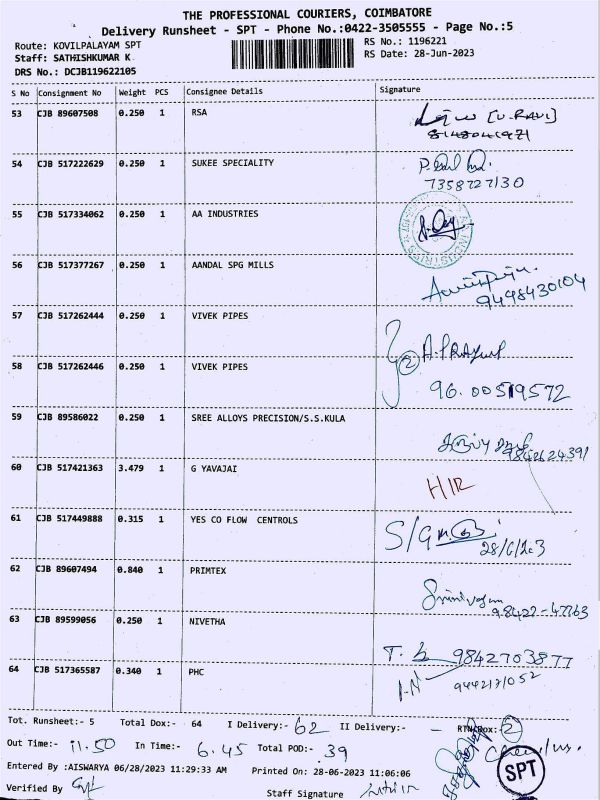 THE PROFESSIONAL COURIERS, COIMBATORE
Delivery Runsheet - SPT - Phone No.:0422-3505555 - Page No.:5
Route: KOVILPALAYAM SPT
RS No.: 1196221
Staff: SATHISHKUMAR K
RS Date: 28-Jun-2023
DRS No.: DCJB119622105
S No Consignment No Weight PCS Consignee Details Signature
53 CJB 89607508 0.250 1 RSA [U.RAVI]
54 CJB 517222629 0.250 1 SUKEE SPECIALITY
7358727130
55 CJB 517334062 0.250 1 AA INDUSTRIES
56 CJB 517377267 0.250 1 AANDAL SPG MILLS
9498430104
57 CJB 517262444 0.250 1 VIVEK PIPES
58 CJB 517262446 0.250 1 VIVEK PIPES
96.00519572
59 CJB 89586022 0.250 1 SREE ALLOYS PRECISION/S.S.KULA
9842624391
60 CJB 517421363 3.479 1 G YAVAJAI
61 CJB 517449888 0.315 1 YES CO FLOW CENTROLS
62 CJB 89607494 0.840 1 PRIMTEX
98422-47763
63 CJB 89599056 0.250 1 NIVETHA
9842703877
64 CJB 517365587 0.340 1 PHC
9442171052
Tot. Runsheet:- 5 Total Dox:- 64 I Delivery:- 62 II Delivery:- - RTN Box: 2
Out Time:- 11.50 In Time:- 6.45 Total POD:- 39
Entered By :AISWARYA 06/28/2023 11:29:33 AM Printed On: 28-06-2023 11:06:06
SPT
Verified By Staff Signature